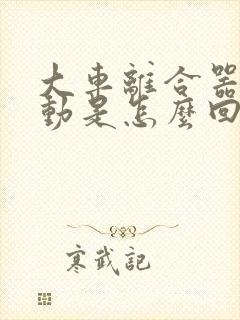 大車離合器
動是怎麼回
寒武記